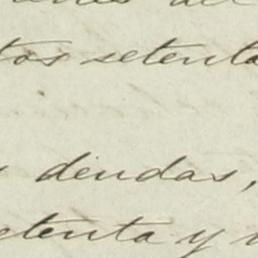 tos setenta
deudas,
etenta y